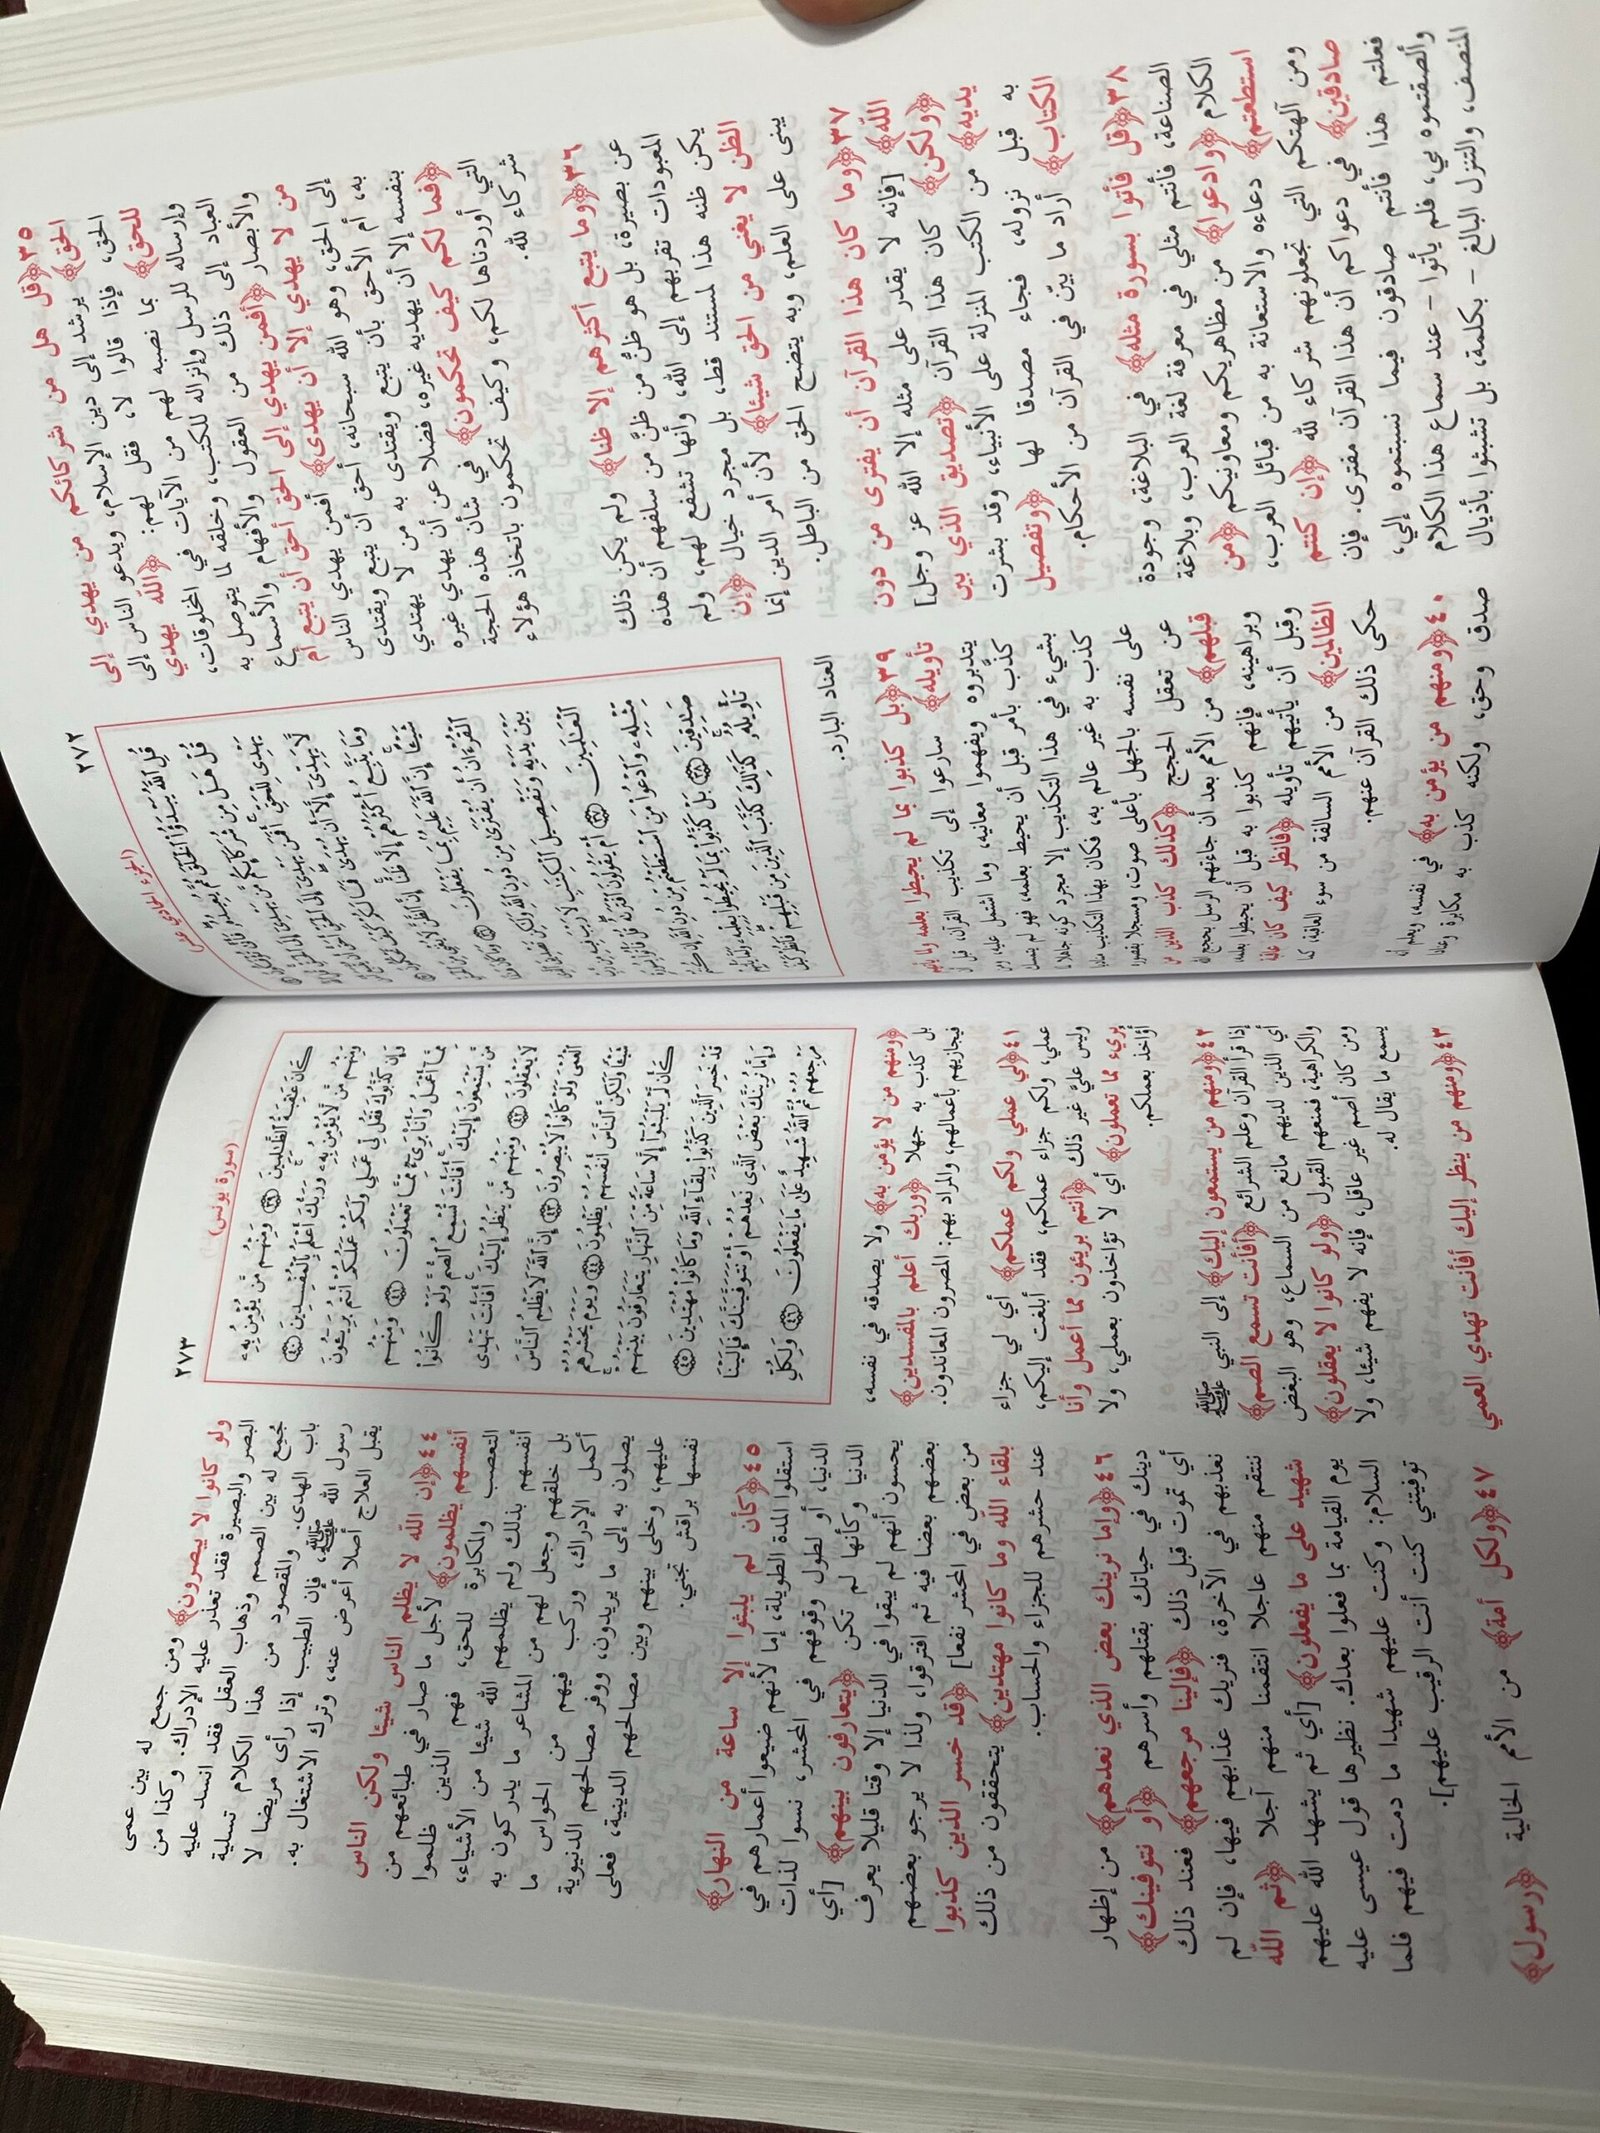 ٢٧٢
(الجزء الحادي عشر)
٣٥﴿قل هل من شركائكم من يهدي إلى
الحق﴾ يرشد إلى دين الإسلام، ويدعو الناس إلى
الحق، فإذا قالوا لا، فقل لهم: ﴿الله يهدي
للحق﴾ بما نصبه لهم من الآيات في المخلوقات،
وإرساله للرسل وإنزاله للكتب، وخلقه لما يتوصل به
العباد إلى ذلك من العقول والأفهام والأسماع
والأبصار ﴿أفمن يهدي إلى الحق أحق أن يتبع أم
من لا يهدي إلا أن يهدى﴾ أفمن يهدي الناس
إلى الحق، وهو الله سبحانه، أحق أن يتبع ويقتدى
به، أم الأحق بأن يتبع ويقتدى به من لا يهتدي
بنفسه إلا أن يهديه غيره، فضلا عن أن يهدي غيره
﴿فما لكم كيف تحكمون﴾ في شأن هذه الحجة
التي أوردناها لكم، وكيف تحكمون باتخاذ هؤلاء
شركاء لله.
٣٦﴿وما يتبع أكثرهم إلا ظنا﴾ ولم يكن ذلك
عن بصيرة، بل هو ظنٌّ من ظنٍّ من سلفهم أن هذه
المعبودات تقربهم إلى الله، وأنها تشفع لهم، ولم
يكن ظنه هذا لمستند قط، بل مجرد خيال ﴿إن
الظن لا يغني من الحق شيئا﴾ لأن أمر الدين إنما
يبنى على العلم، وبه يتضح الحق من الباطل.
٣٧﴿وما كان هذا القرآن أن يفترى من دون
الله﴾ [فإنه لا يقدر على مثله إلا الله عز وجل]
﴿ولكن﴾ كان هذا القرآن ﴿تصديق الذي بين
يديه﴾ من الكتب المنزلة على الأنبياء، وقد بشرت
به قبل نزوله، فجاء مصدقا لها ﴿وتفصيل
الكتاب﴾ أراد ما بيّن في القرآن من الأحكام.
٣٨﴿قل فأتوا بسورة مثله﴾ في البلاغة، وجودة
الصناعة، فأنتم مثلي في معرفة لغة العرب، وبلاغة
الكلام ﴿وادعوا﴾ من مظاهريكم ومعاونيكم ﴿من
استطعتم﴾ دعاءه والاستعانة به من قبائل العرب،
ومن آلهتكم التي تجعلونهم شركاء لله ﴿إن كنتم
صادقين﴾ في دعواكم أن هذا القرآن مفترى. فإن
فعلتم هذا فأنتم صادقون فيما نسبتموه إلي،
وألصقتموه بي، فلم يأتوا - عند سماع هذا الكلام
المنصف، والتنزل البالغ - بكلمة، بل تشبثوا بأذيال
قُلِ ٱللَّهُ يَبْدَؤُا۟ ٱلْخَلْقَ ثُمَّ يُعِيدُهُۥ
قُلْ هَلْ مِن شُرَكَآئِكُم مَّن يَهْدِىٓ إِلَى ٱلْحَقِّ قُلِ ٱللَّهُ
يَهْدِى لِلْحَقِّ أَفَمَن يَهْدِىٓ إِلَى ٱلْحَقِّ
لَّا يَهِدِّىٓ إِلَّآ أَن يُهْدَىٰ فَمَا لَكُمْ كَيْفَ تَحْكُمُونَ
وَمَا يَتَّبِعُ أَكْثَرُهُمْ إِلَّا ظَنًّا إِنَّ ٱلظَّنَّ لَا يُغْنِى مِنَ ٱلْحَقِّ
شَيْـًٔا إِنَّ ٱللَّهَ عَلِيمٌۢ بِمَا يَفْعَلُونَ ٣٦ وَمَا كَانَ هَٰذَا
ٱلْقُرْءَانُ أَن يُفْتَرَىٰ مِن دُونِ ٱللَّهِ وَلَٰكِن تَصْدِيقَ ٱلَّذِى
بَيْنَ يَدَيْهِ وَتَفْصِيلَ ٱلْكِتَٰبِ لَا رَيْبَ فِيهِ مِن رَّبِّ
ٱلْعَٰلَمِينَ ٣٧ أَمْ يَقُولُونَ ٱفْتَرَىٰهُ قُلْ فَأْتُوا۟ بِسُورَةٍ
مِّثْلِهِۦ وَٱدْعُوا۟ مَنِ ٱسْتَطَعْتُم مِّن دُونِ ٱللَّهِ إِن كُنتُمْ
صَٰدِقِينَ ٣٨ بَلْ كَذَّبُوا۟ بِمَا لَمْ يُحِيطُوا۟ بِعِلْمِهِۦ وَلَمَّا يَأْتِهِمْ
تَأْوِيلُهُۥ كَذَٰلِكَ كَذَّبَ ٱلَّذِينَ مِن قَبْلِهِمْ فَٱنظُرْ كَيْفَ
العناد البارد.
٣٩﴿بل كذبوا بما لم يحيطوا بعلمه ولما يأتهم
تأويله﴾ سارعوا إلى تكذيب القرآن، قبل أن
يتدبروه ويفهموا معانيه، وما اشتمل عليه، ومن
كذَّب بأمر قبل أن يحيط بعلمه، فهو لم يتمسك
بشيء في هذا التكذيب إلا مجرد كونه جاهلا لما
كذب به غير عالم به، فكان بهذا التكذيب مناديا
على نفسه بالجهل بأعلى صوت، ومسجلا بقصوره
عن تعقل الحجج ﴿كذلك كذب الذين من
قبلهم﴾ من الأمم بعد أن جاءتهم الرسل بحجج الله
وبراهينه، فإنهم كذبوا به قبل أن يحيطوا بعلمه،
وقبل أن يأتيهم تأويله ﴿فانظر كيف كان عاقبة
الظالمين﴾ من الأمم السالفة من سوء العاقبة، كما
حكى ذلك القرآن عنهم.
٤٠﴿ومنهم من يؤمن به﴾ في نفسه، ويعلم أنه
صدق وحق، ولكنه كذب به مكابرة وعنادا
٢٧٣
(سورة يونس)
كَانَ عَٰقِبَةُ ٱلظَّٰلِمِينَ ٣٩ وَمِنْهُم مَّن يُؤْمِنُ بِهِۦ
وَمِنْهُم مَّن لَّا يُؤْمِنُ بِهِۦ وَرَبُّكَ أَعْلَمُ بِٱلْمُفْسِدِينَ ٤٠
وَإِن كَذَّبُوكَ فَقُل لِّى عَمَلِى وَلَكُمْ عَمَلُكُمْ أَنتُم بَرِيٓـُٔونَ
مِمَّآ أَعْمَلُ وَأَنَا۠ بَرِىٓءٌ مِّمَّا تَعْمَلُونَ ٤١ وَمِنْهُم
مَّن يَسْتَمِعُونَ إِلَيْكَ أَفَأَنتَ تُسْمِعُ ٱلصُّمَّ وَلَوْ كَانُوا۟
لَا يَعْقِلُونَ ٤٢ وَمِنْهُم مَّن يَنظُرُ إِلَيْكَ أَفَأَنتَ تَهْدِى
ٱلْعُمْىَ وَلَوْ كَانُوا۟ لَا يُبْصِرُونَ ٤٣ إِنَّ ٱللَّهَ لَا يَظْلِمُ ٱلنَّاسَ
شَيْـًٔا وَلَٰكِنَّ ٱلنَّاسَ أَنفُسَهُمْ يَظْلِمُونَ ٤٤ وَيَوْمَ يَحْشُرُهُمْ
كَأَن لَّمْ يَلْبَثُوٓا۟ إِلَّا سَاعَةً مِّنَ ٱلنَّهَارِ يَتَعَارَفُونَ بَيْنَهُمْ
قَدْ خَسِرَ ٱلَّذِينَ كَذَّبُوا۟ بِلِقَآءِ ٱللَّهِ وَمَا كَانُوا۟ مُهْتَدِينَ ٤٥
وَإِمَّا نُرِيَنَّكَ بَعْضَ ٱلَّذِى نَعِدُهُمْ أَوْ نَتَوَفَّيَنَّكَ فَإِلَيْنَا
مَرْجِعُهُمْ ثُمَّ ٱللَّهُ شَهِيدٌ عَلَىٰ مَا يَفْعَلُونَ ٤٦ وَلِكُلِّ
﴿ومنهم من لا يؤمن به﴾ ولا يصدقه في نفسه،
بل كذب به جهلا ﴿وربك أعلم بالمفسدين﴾
فيجازيهم بأعمالهم، والمراد بهم: المصرون المعاندون.
٤١﴿لي عملي ولكم عملكم﴾ أي لي جزاء
عملي، ولكم جزاء عملكم، فقد أبلغت إليكم،
وليس عليَّ غير ذلك ﴿أنتم بريئون مما أعمل وأنا
بريء مما تعملون﴾ أي لا تؤاخذون بعملي، ولا
أؤاخذ بعملكم.
٤٢﴿ومنهم من يستمعون إليك﴾ إلى النبي ﷺ
إذا قرأ القرآن وعلم الشرائع ﴿أفأنت تسمع الصم﴾
أي الذين لديهم مانع من السماع، وهو البغض
والكراهية، فمنعهم القبول ﴿ولو كانوا لا يعقلون﴾
ومن كان أصم غير عاقل، فإنه لا يفهم شيئا، ولا
يسمع ما يقال له.
٤٣﴿ومنهم من ينظر إليك أفأنت تهدي العمي
ولو كانوا لا يبصرون﴾ ومن جمع له بين عمى
البصر والبصيرة فقد تعذر عليه الإدراك. وكذا من
جُمِع له بين الصمم وذهاب العقل فقد انسد عليه
باب الهدى. والمقصود من هذا الكلام تسلية
رسول الله ﷺ، فإن الطبيب إذا رأى مريضا لا
يقبل العلاج أصلا أعرض عنه، وترك الاشتغال به.
٤٤﴿إن الله لا يظلم الناس شيئا ولكن الناس
أنفسهم يظلمون﴾ لأجل ما صار في طبائعهم من
التعصب والمكابرة للحق، فهم الذين ظلموا
أنفسهم بذلك ولم يظلمهم الله شيئا من الأشياء،
بل خلقهم وجعل لهم من المشاعر ما يدركون به
أكمل الإدراك، وركب فيهم من الحواس ما
يصلون به إلى ما يريدون، ووفر مصالحهم الدنيوية
عليهم، وخلى بينهم وبين مصالحهم الدينية، فعلى
نفسها براقش تجني.
٤٥﴿كأن لم يلبثوا إلا ساعة من النهار﴾
استقلوا المدة الطويلة، إما لأنهم ضيعوا أعمارهم في
الدنيا، أو لطول وقوفهم في المحشر، نسوا لذات
الدنيا وكأنها لم تكن ﴿يتعارفون بينهم﴾ [أي
يحسون أنهم لم يبقوا في الدنيا إلا وقتا قليلا يعرف
بعضهم بعضا فيه ثم افترقوا، ولذا لا يرجو بعضهم
من بعض في المحشر نفعا] ﴿قد خسر الذين كذبوا
بلقاء الله وما كانوا مهتدين﴾ يتحققون من ذلك
عند حشرهم للجزاء والحساب.
٤٦﴿وإما نرينك بعض الذي نعدهم﴾ من إظهار
دينك في حياتك بقتلهم وأسرهم ﴿أو نتوفينك﴾
أي تموت قبل ذلك ﴿فإلينا مرجعهم﴾ فعند ذلك
نعذبهم في الآخرة، فنريك عذابهم فيها، فإن لم
ننتقم منهم عاجلا انتقمنا منهم آجلا ﴿ثم الله
شهيد على ما يفعلون﴾ [أي ثم يشهد الله عليهم
يوم القيامة بما فعلوا بعدك. نظيرها قول عيسى عليه
السلام: وكنت عليهم شهيدا ما دمت فيهم فلما
توفيتني كنت أنت الرقيب عليهم].
٤٧﴿ولكل أمة﴾ من الأمم الخالية ﴿رسول﴾